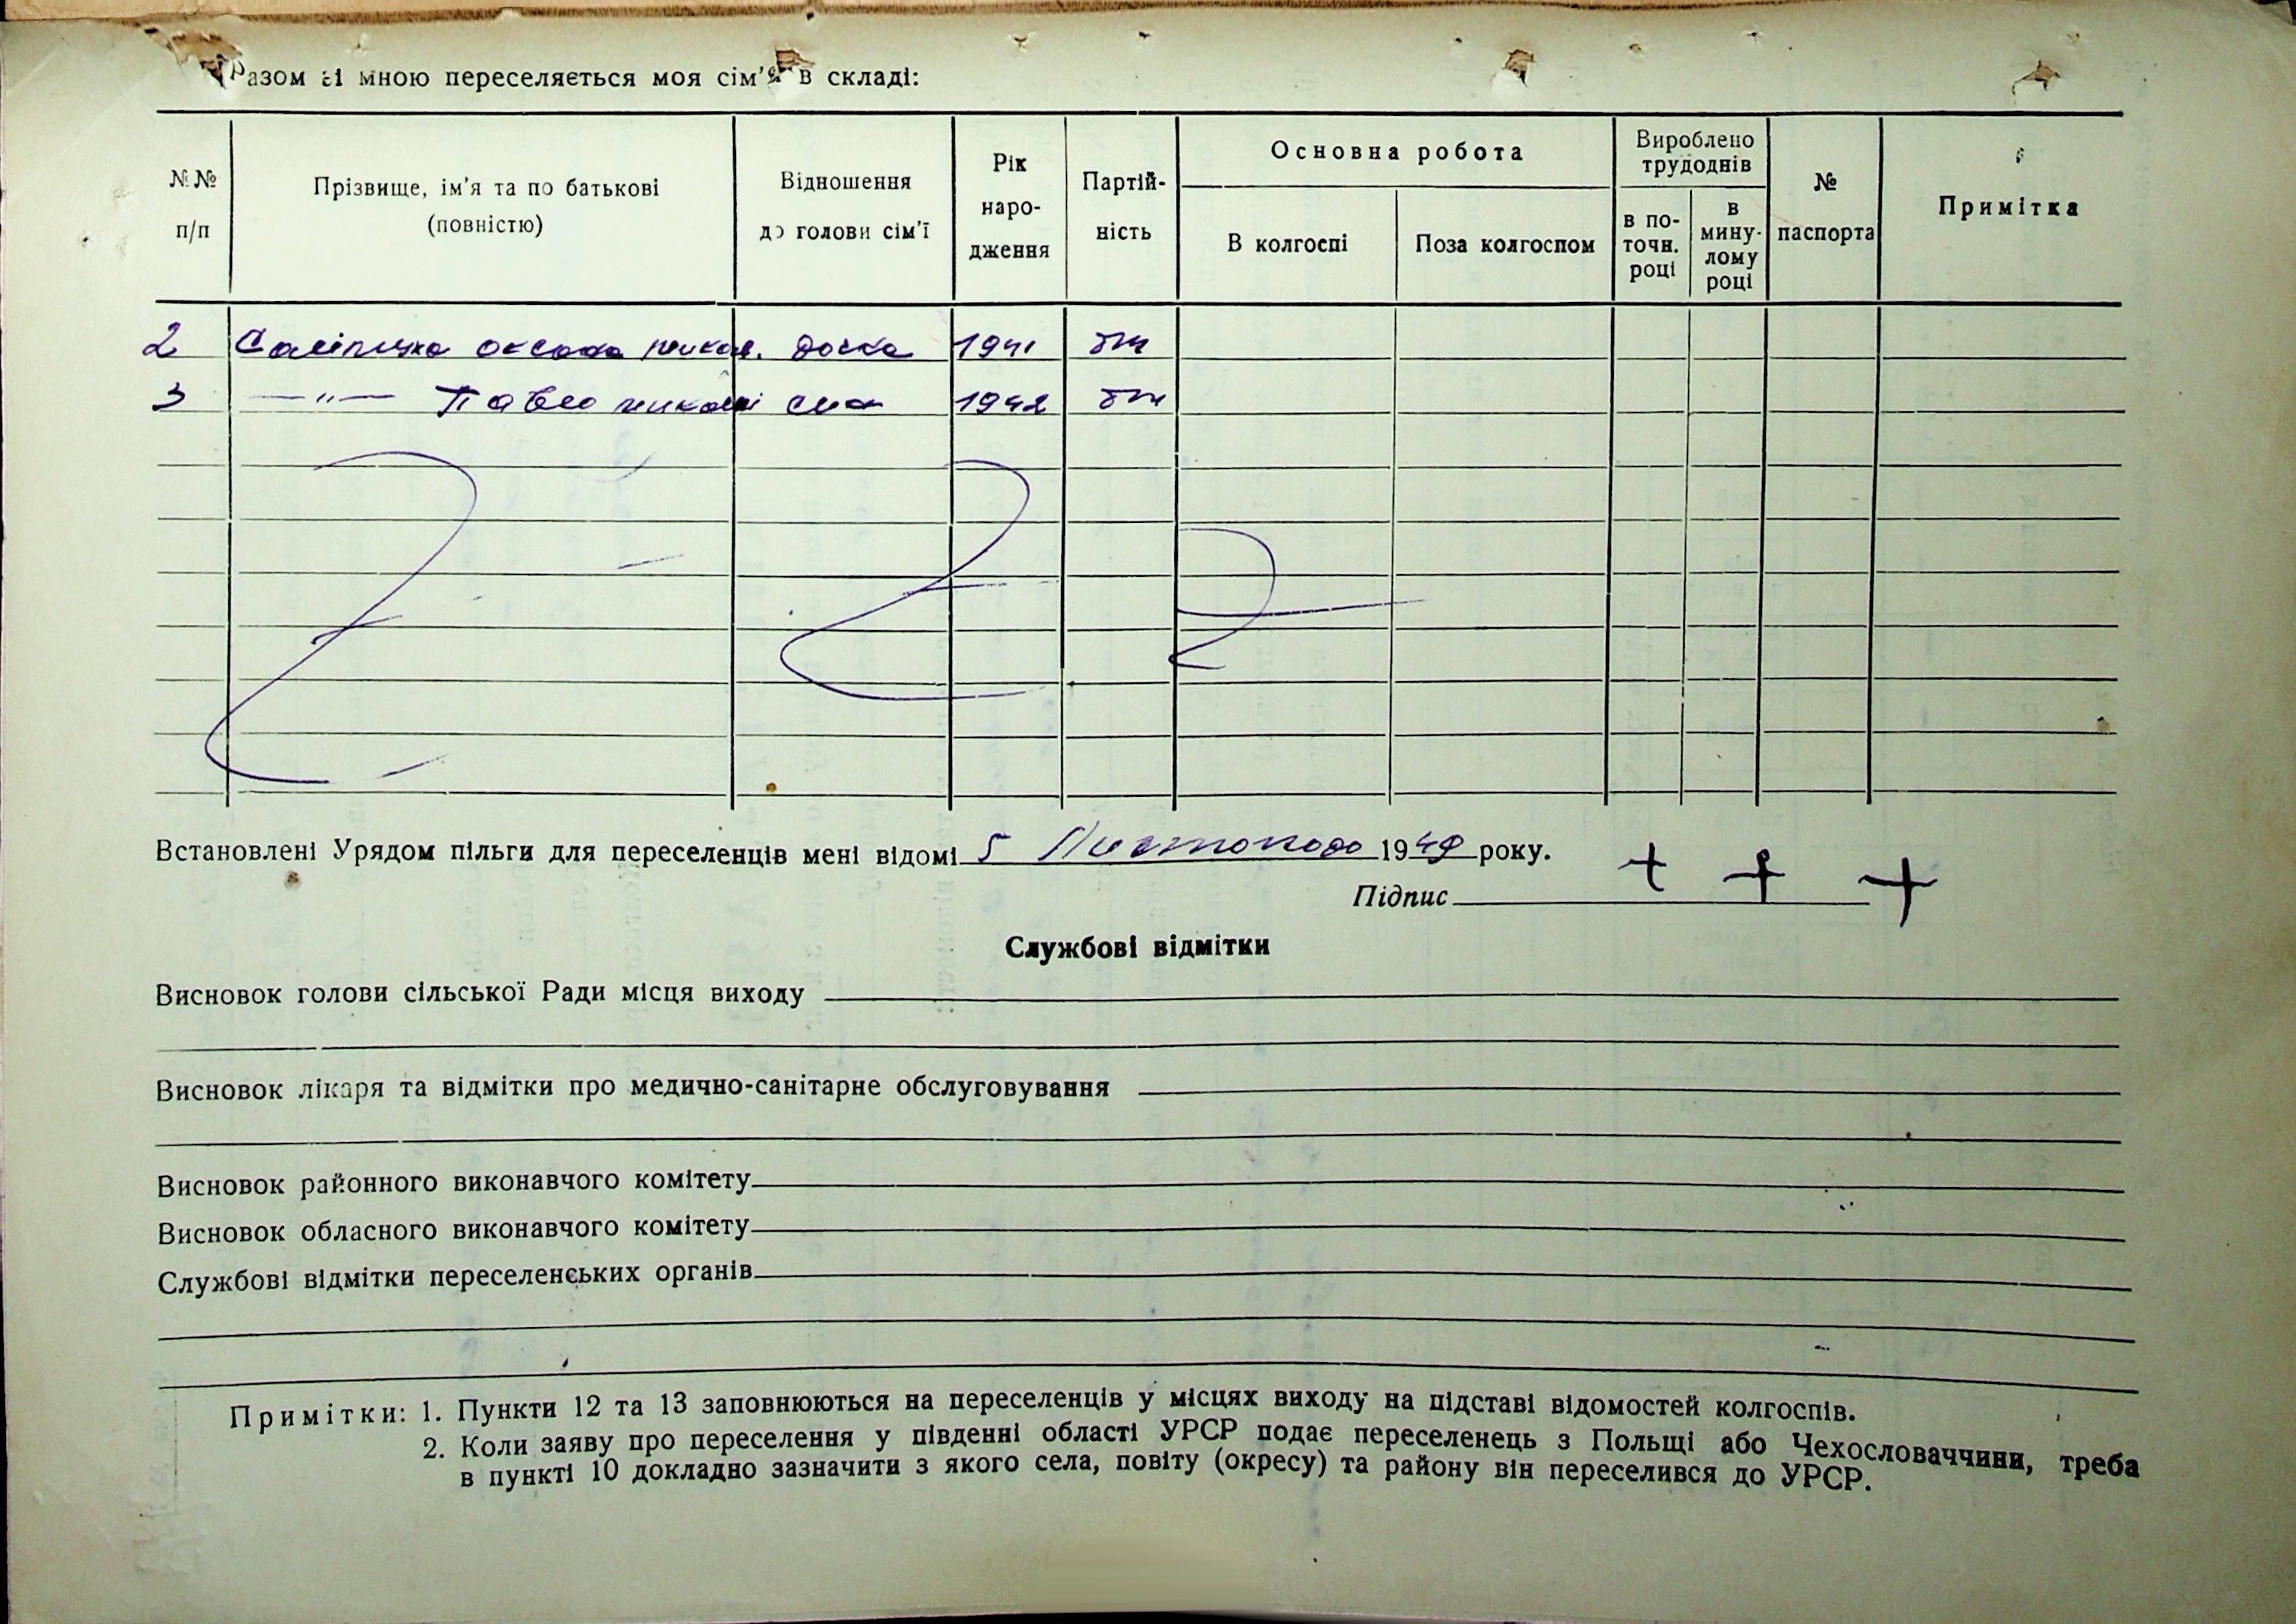 Разом зі мною переселяється моя сім'я в складі:
№№ п/п
Прізвище, ім'я та по батькові (повністю)
Відношення до голови сім'ї
Рік народження
Партійність
Основна робота
В колгоспі
Поза колгоспом
Вироблено трудоднів
в поточн. році
в минулому році
№ паспорта
Примітка
2 Оксана микол. дочка 1941 бп
3 —"— Павло микол син 1942 бп
Встановлені Урядом пільги для переселенців мені відомі 5 Листопада 1949 року.
Підпис + + +
Службові відмітки
Висновок голови сільської Ради місця виходу
Висновок лікаря та відмітки про медично-санітарне обслуговування
Висновок районного виконавчого комітету
Висновок обласного виконавчого комітету
Службові відмітки переселенських органів
Примітки: 1. Пункти 12 та 13 заповнюються на переселенців у місцях виходу на підставі відомостей колгоспів.
2. Коли заяву про переселення у південні області УРСР подає переселенець з Польщі або Чехословаччини, треба
в пункті 10 докладно зазначити з якого села, повіту (окресу) та району він переселився до УРСР.